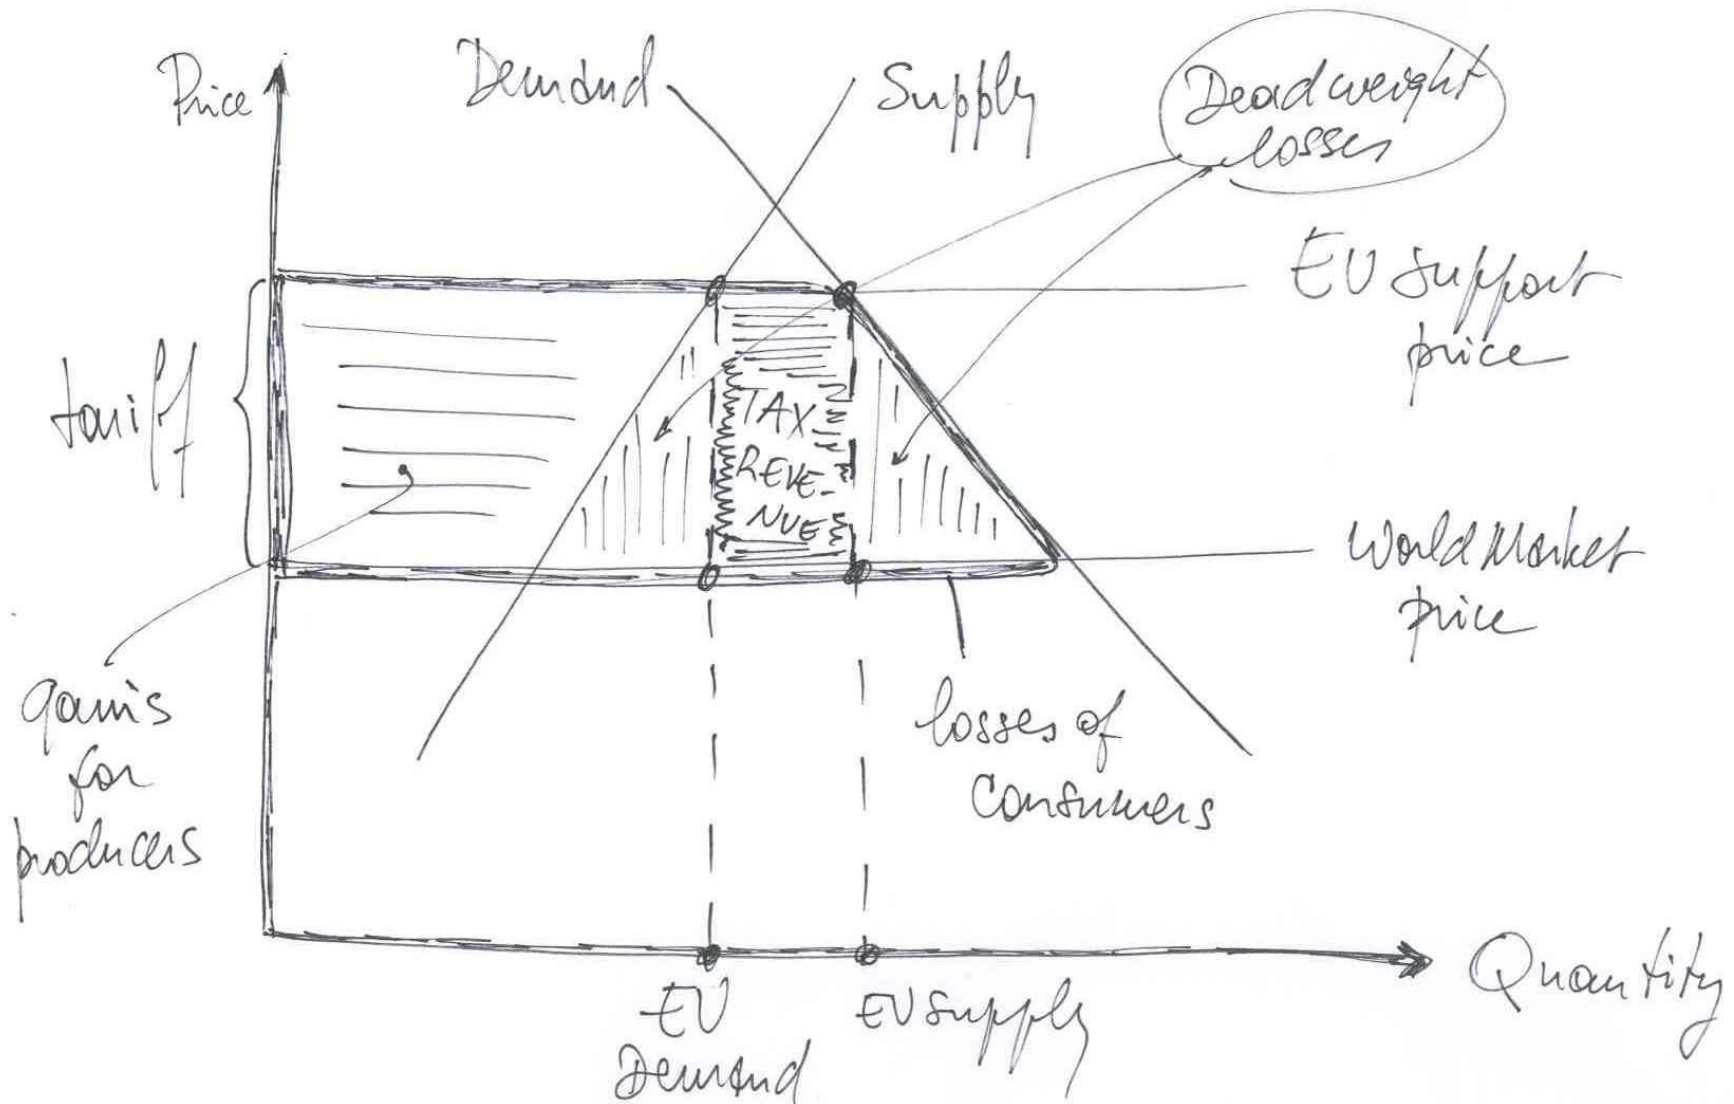 Price
Demand
Supply
Deadweight
losses
EU support
price
tariff
TAX
REVE-
NUE
World Market
price
gains
for
producers
losses of
Consumers
Quantity
EU
Demand
EU Supply